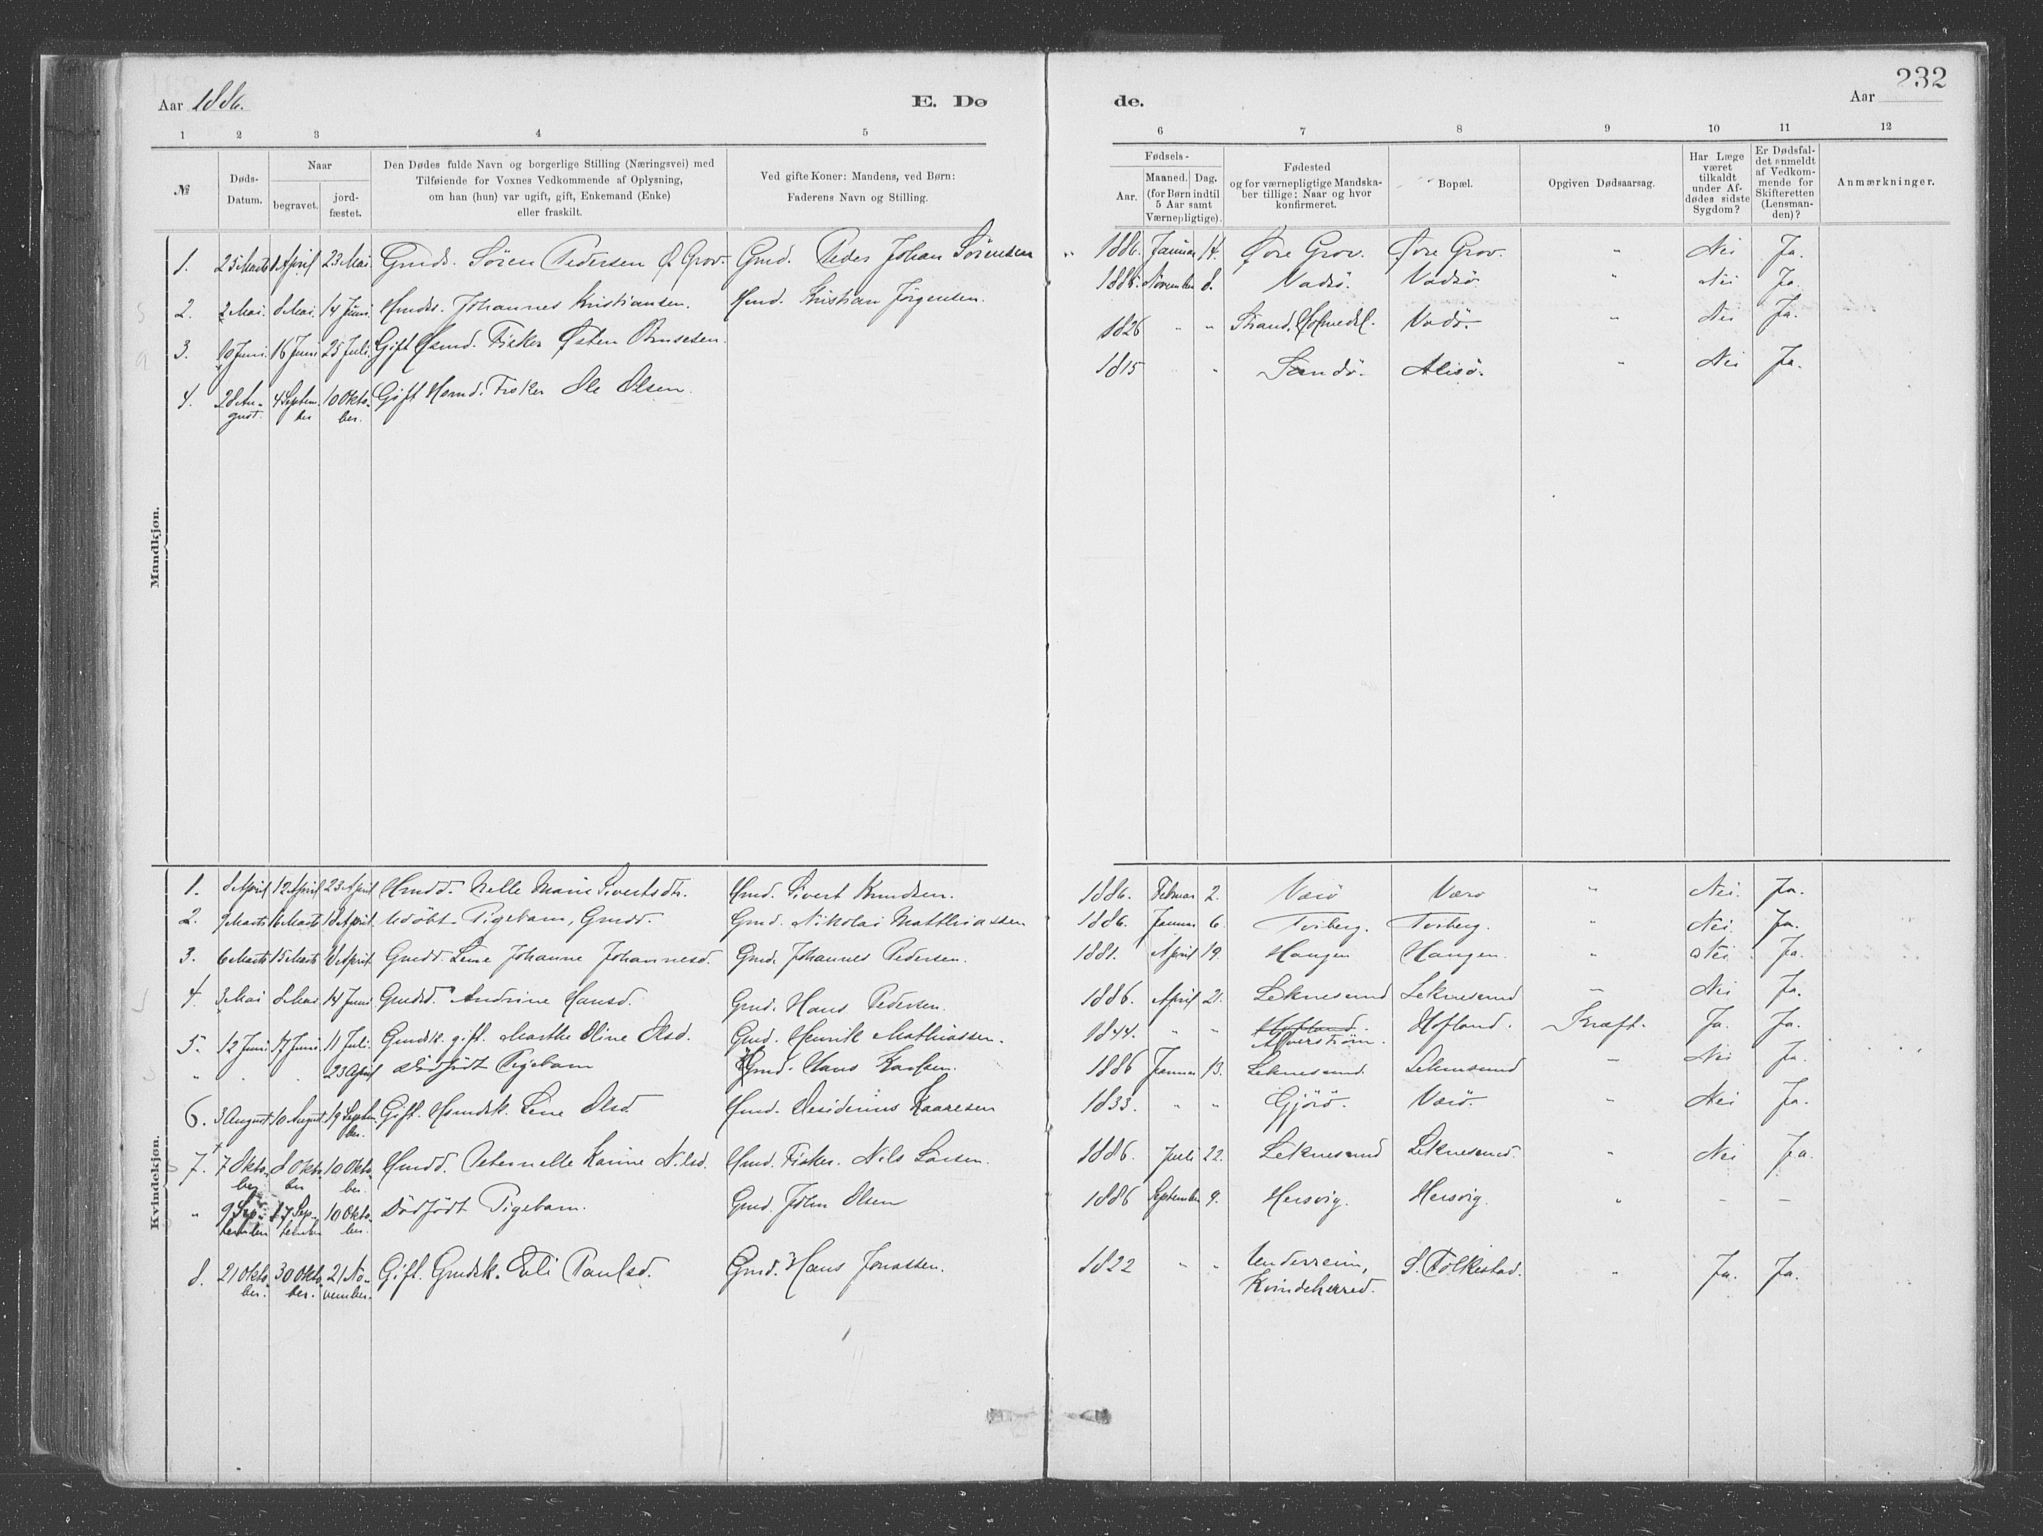 Aar 1886.
E. Dø
de.
232
Aar
1 2 3 4 5 6 7 8 9 10 11 12
№
Døds-
Datum.
Naar
begravet.
jord-
fæstet.
Den Dødes fulde Navn og borgerlige Stilling (Næringsvei) med
Tilføiende for Voxnes Vedkommende af Oplysning,
om han (hun) var ugift, gift, Enkemand (Enke)
eller fraskilt.
Ved gifte Koner: Mandens, ved Børn:
Faderens Navn og Stilling.
Fødsels-
Aar.
Maaned.
(for Børn indtil
5 Aar samt
Værnepligtige).
Dag.
Fødested
og for værnepligtige Mandska-
ber tillige: Naar og hvor
konfirmeret.
Bopæl.
Opgiven Dødsaarsag.
Har Læge
været
tilkaldt
under Af-
dødes sidste
Sygdom?
Er Dødsfal-
det anmeldt
af Vedkom-
mende for
Skifteretten
(Lensman-
den)?
Anmærkninger.
Mandkjøn.
1. 25 Marts 1 April 23 Mai. Gmds. Søren Pedersen Ø. Grov. Gmd. Peder Johan Sørensen 1886. Januar 14. Øvre Grov. Øvre Grov. " Nei Ja.
2. 2 Mai. 8 Mai. 14 Juni Hmds. Johannes Kristiansen. Hmd. Kristian Jørgensen. 1885. November 8. Vadsø. Vadsø. Nei Ja
3. 10 Juni. 16 Juni 25 Juli Gift Fisker Østen 1826 " " Strand, Vadsø. " Nei Ja.
4. 28 Au-
gust. 4 Septem-
ber 10 Okto-
ber. Gift Hsmd. Fisker Ole Olsen. 1815 " Sandø. Alisø. " Nei Ja.
Kvindekjøn.
1. 8 April 12 April 23 April Hmdd. Nelle Marie Sivertsdtr. Hmd. Sivert Knudsen. 1886. Februar 2. Værø Værø " Nei. Ja.
2. 9 Marts 16 Marts 18 April Udøbt Pigebarn, Gmdd. Gmd. Nikolai Matthiassen 1886. Januar 6. Tviberg. Tviberg. " Nei. Ja.
3. 6 Marts 15 Marts 18 April Gmdd. Line Johanne Johannesd. Gmd. Johannes Pedersen. 1881. April 19. Haugen Haugen. " Nei Ja.
4. 3 Mai 8 Mai 14 Juni Gmdd. Andrine Hansd. Gmd. Hans Pedersen. 1886. April 21. Leknesund Leknesund " Nei Ja.
5. 12 Juni 17 Juni. 11 Juli. Gmdsk. gift. Marthe Oline Olsd. Gmd. Henrik Mathiassen. 1844. " " Hofland.
Alverstrøm. Hofland. Kræft. Ja. Ja.
" 23 April Dødfødt Pigebarn Gmd. Hans Karlsen. 1886 Januar 13. Leknesund. Leknesund " Nei Ja.
6. 3 August 10 August 19 Septem-
ber. Gift. Hsmdsk. Line Olsd Hmd. Desiderius Kaaresen 1833. " " Gjørø. Værø. " Nei Ja.
7. 7 Okto-
ber 8 Okto-
ber 10 Okto-
ber. Hmdd. Peternelle Karine Nilsd. Hmd. Fisker. Nils Larsen. 1886. Juli 22. Leknesund Leknesund. " Nei Ja.
" 9 Sep-
tember 17 Sep-
tember 10 Okto-
ber. Dødfødt Pigebarn. Gmd. John Olsen 1886 September 9. Hersvig. Hersvig. " – –
8. 21 Okto-
ber. 30 Okto-
ber. 21 No-
vember. Gift. Gmdsk. Eli Paulsd. Gmd. Hans Jonassen. 1822 " " Underreim,
Kvindeherred. S. Folkestad. " Ja. Ja.